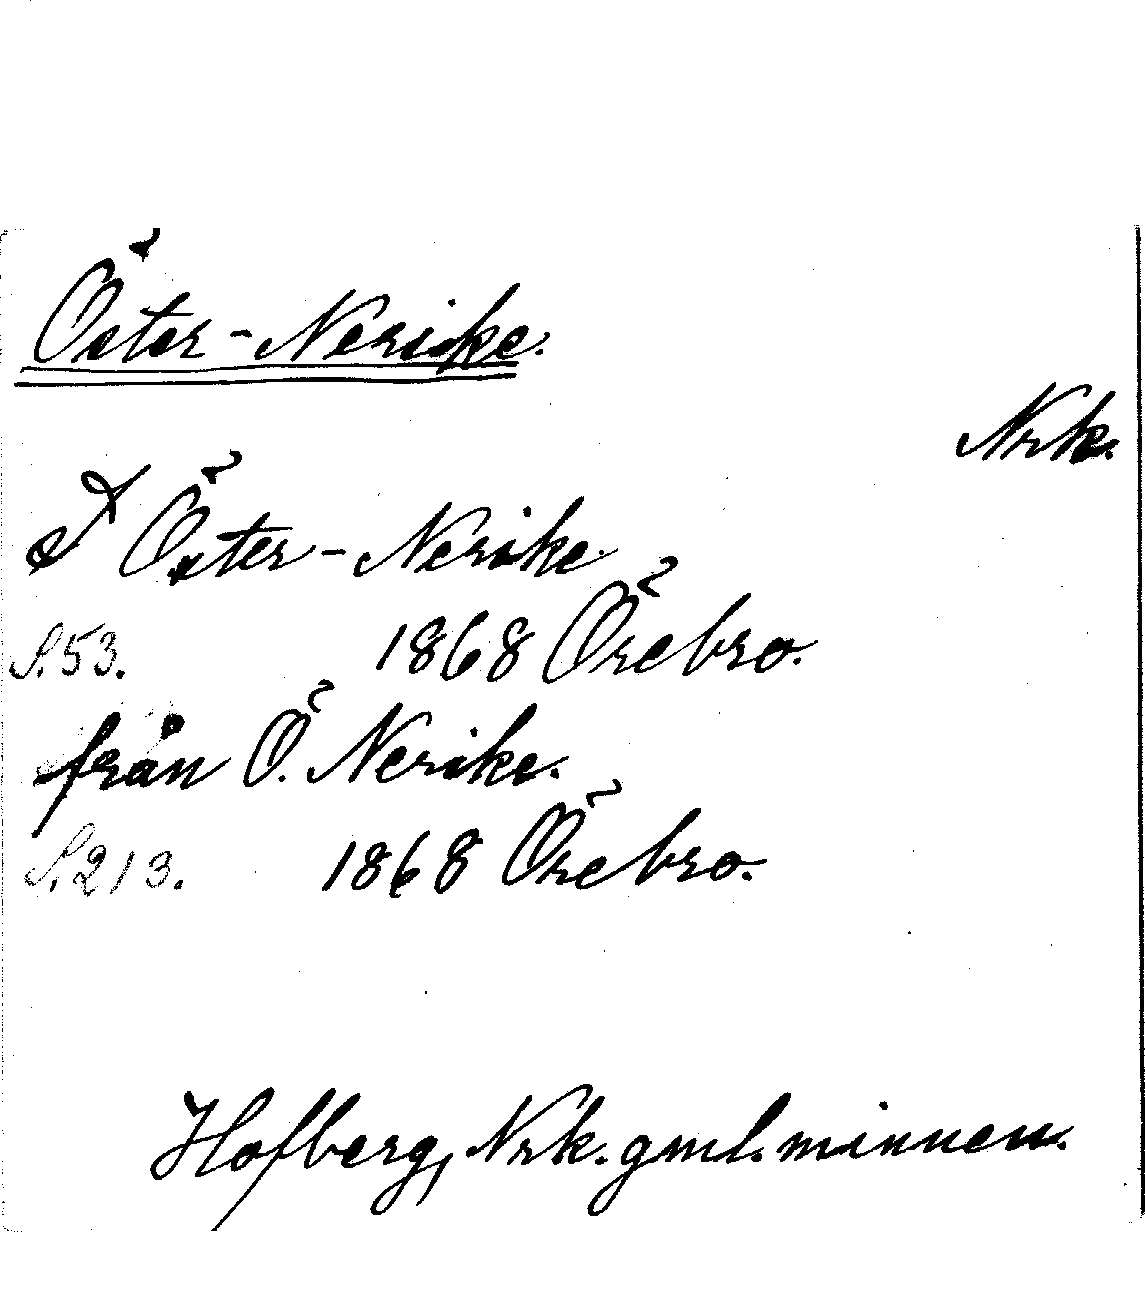 Öster-Nerike.
Nrk.
I Öster-Nerike.
S.53. 1868 Örebro.
från Ö. Nerike.
S.213. 1868 Örebro.
Hofberg, Nrk. gml. minnen.